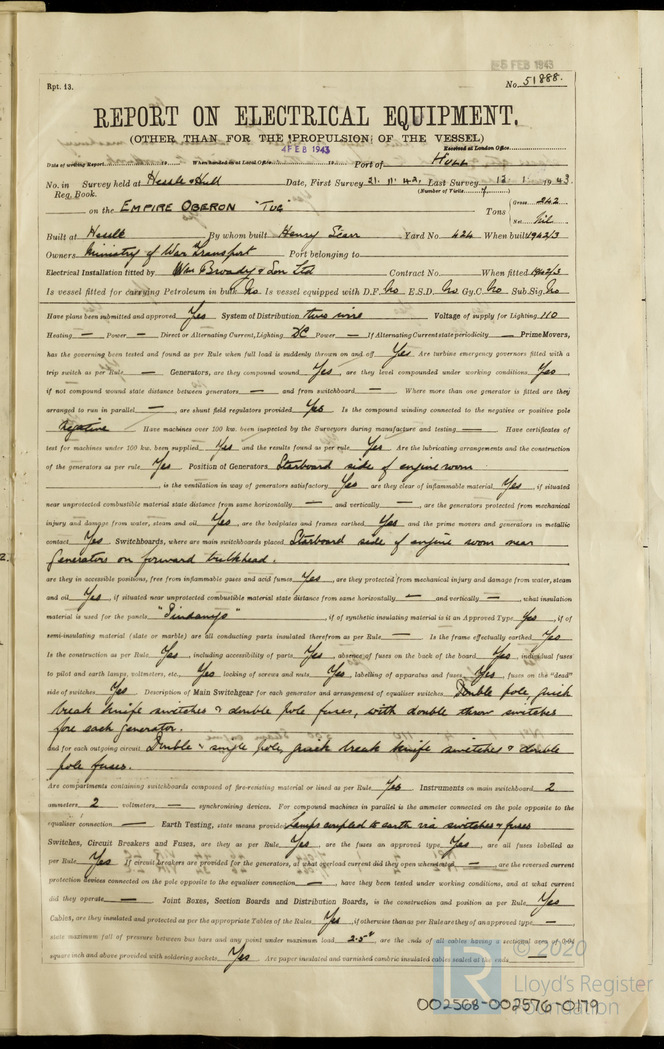 5 FEB 1943
Rpt. 13.
No. 51888.
REPORT ON ELECTRICAL EQUIPMENT.
(OTHER THAN FOR THE PROPULSION OF THE VESSEL)
4 FEB 1943
Received at London Office
Date of writing Report 19 When handed in at Local Office 19 Port of HULL
No. in Survey held at Hessle & Hull Date, First Survey 21. 11. 42. Last Survey 13. 1. 1943
Reg. Book. (Number of Visits 7.)
on the EMPIRE OBERON "TUG" Tons { Gross 242 Net Nil
Built at Hessle By whom built Henry Scarr Yard No. 424 When built 1942/3
Owners Ministry of War Transport Port belonging to
Electrical Installation fitted by Wm Broady & Son Ltd Contract No. When fitted 1942/3
Is vessel fitted for carrying Petroleum in bulk No. Is vessel equipped with D.F. No E.S.D. No Gy.C. No Sub.Sig. No
Have plans been submitted and approved Yes System of Distribution two wire Voltage of supply for Lighting 110
Heating — Power — Direct or Alternating Current, Lighting DC Power — If Alternating Current state periodicity — Prime Movers,
has the governing been tested and found as per Rule when full load is suddenly thrown on and off Yes Are turbine emergency governors fitted with a
trip switch as per Rule — Generators, are they compound wound Yes, are they level compounded under working conditions Yes,
if not compound wound state distance between generators — and from switchboard — Where more than one generator is fitted are they
arranged to run in parallel —, are shunt field regulators provided Yes Is the compound winding connected to the negative or positive pole
Negative Have machines over 100 kw. been inspected by the Surveyors during manufacture and testing — Have certificates of
test for machines under 100 kw. been supplied Yes and the results found as per rule Yes Are the lubricating arrangements and the construction
of the generators as per rule Yes Position of Generators Starboard side of engine room
, is the ventilation in way of generators satisfactory Yes are they clear of inflammable material Yes, if situated
near unprotected combustible material state distance from same horizontally — and vertically —, are the generators protected from mechanical
injury and damage from water, steam and oil Yes, are the bedplates and frames earthed Yes and the prime movers and generators in metallic
contact Yes Switchboards, where are main switchboards placed Starboard side of engine room near
generators on forward bulkhead.
are they in accessible positions, free from inflammable gases and acid fumes Yes, are they protected from mechanical injury and damage from water, steam
and oil Yes, if situated near unprotected combustible material state distance from same horizontally — and vertically —, what insulation
material is used for the panels "Sindanyo", if of synthetic insulating material is it an Approved Type Yes, if of
semi-insulating material (slate or marble) are all conducting parts insulated therefrom as per Rule — Is the frame effectually earthed Yes
Is the construction as per Rule Yes, including accessibility of parts Yes, absence of fuses on the back of the board Yes, individual fuses
to pilot and earth lamps, voltmeters, etc. Yes locking of screws and nuts Yes, labelling of apparatus and fuses Yes, fuses on the "dead"
side of switches Yes Description of Main Switchgear for each generator and arrangement of equaliser switches Double pole, quick
break knife switches & double pole fuses, with double throw switches
for each generator.
and for each outgoing circuit Double & single pole, quick break knife switches & double
pole fuses.
Are compartments containing switchboards composed of fire-resisting material or lined as per Rule Yes Instruments on main switchboard 2
ammeters 2 voltmeters — synchronising devices. For compound machines in parallel is the ammeter connected on the pole opposite to the
equaliser connection — Earth Testing, state means provided Lamps coupled to earth via switches & fuses
Switches, Circuit Breakers and Fuses, are they as per Rule Yes, are the fuses an approved type Yes, are all fuses labelled as
per Rule Yes If circuit breakers are provided for the generators, at what overload current did they open when tested —, are the reversed current
protection devices connected on the pole opposite to the equaliser connection —, have they been tested under working conditions, and at what current
did they operate — Joint Boxes, Section Boards and Distribution Boards, is the construction and position as per Rule Yes
Cables, are they insulated and protected as per the appropriate Tables of the Rules Yes, if otherwise than as per Rule are they of an approved type —
state maximum fall of pressure between bus bars and any point under maximum load 2.5 v are the ends of all cables having a sectional area of 0.04
square inch and above provided with soldering sockets Yes Are paper insulated and varnished cambric insulated cables sealed at the ends
© 2020
Lloyd's Register
Foundation
002568-002576-0179